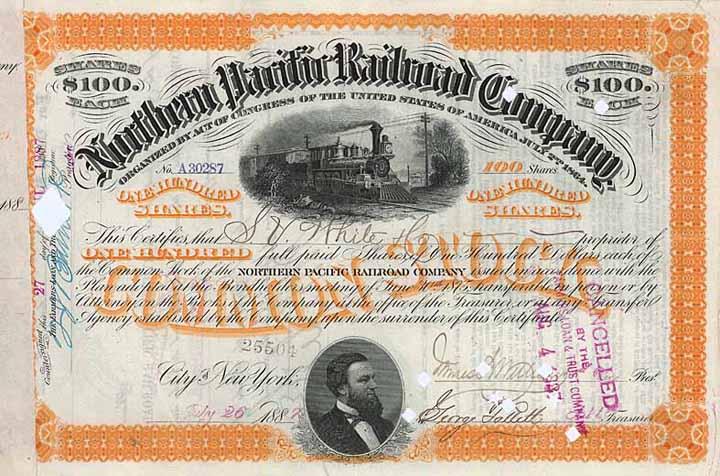 SHARES
$100.
EACH
SHARES
$100.
EACH
Northern Pacific Railroad Company,
ORGANIZED BY ACT OF CONGRESS OF THE UNITED STATES OF AMERICA JULY 2ND 1864.
No. A30287
100 Shares.
ONE HUNDRED
SHARES.
ONE HUNDRED
SHARES.
This Certifies that S. V. White & Co proprietor of
ONE HUNDRED full paid Shares of One Hundred Dollars each, of
the Common Stock of the NORTHERN PACIFIC RAILROAD COMPANY issued in accordance with the
Plan adopted at the Bondholders meeting of June 30th 1875 transferable in person or by
Attorney on the books of the Company at the office of the Treasurer, or at any Transfer
Agency established by the Company, upon the surrender of this Certificate.
COMMON STOCK
25504
City of New York,
July 26 1882
Prest.
George Gallett
Treasurer
CANCELLED
BY THE
LOAN & TRUST COMPANY
4 1887
188
Countersigned this 27 day of 1887